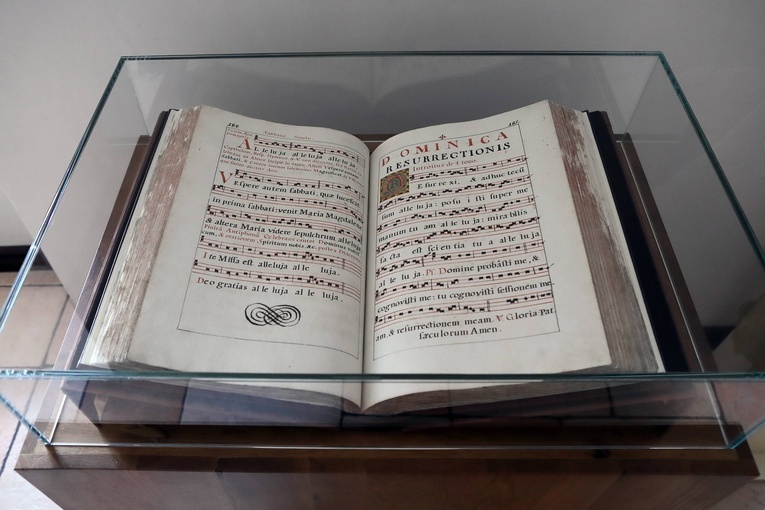 Sabbato Sancto
Al le lu ja al le lu ja alle lu ja.
VEspere autem sabbati, quæ lucescit
in prima sabbati: venit Maria Magdalene
& altera Maria videre sepulchrum alleluja
Spiritum nobis, &c.
Ite Missa est alleluja al le luja.
Deo gratias al le luja al le luja.
DOMINICA
RESURRECTIONIS
Introitus
REsur re xi, & adhuc tecũ
sum alle lu ja: posu i sti super me
manum tu am al le lu ja mira bilis
fa cta est sci en tia tu a al le lu ja
al le lu ja. Ps. Domine probâsti me, &
cognovisti me: tu cognovisti sessionẽm me-
am, & resurrectionem meam. V Gloria Pat
sæculorum Amen.